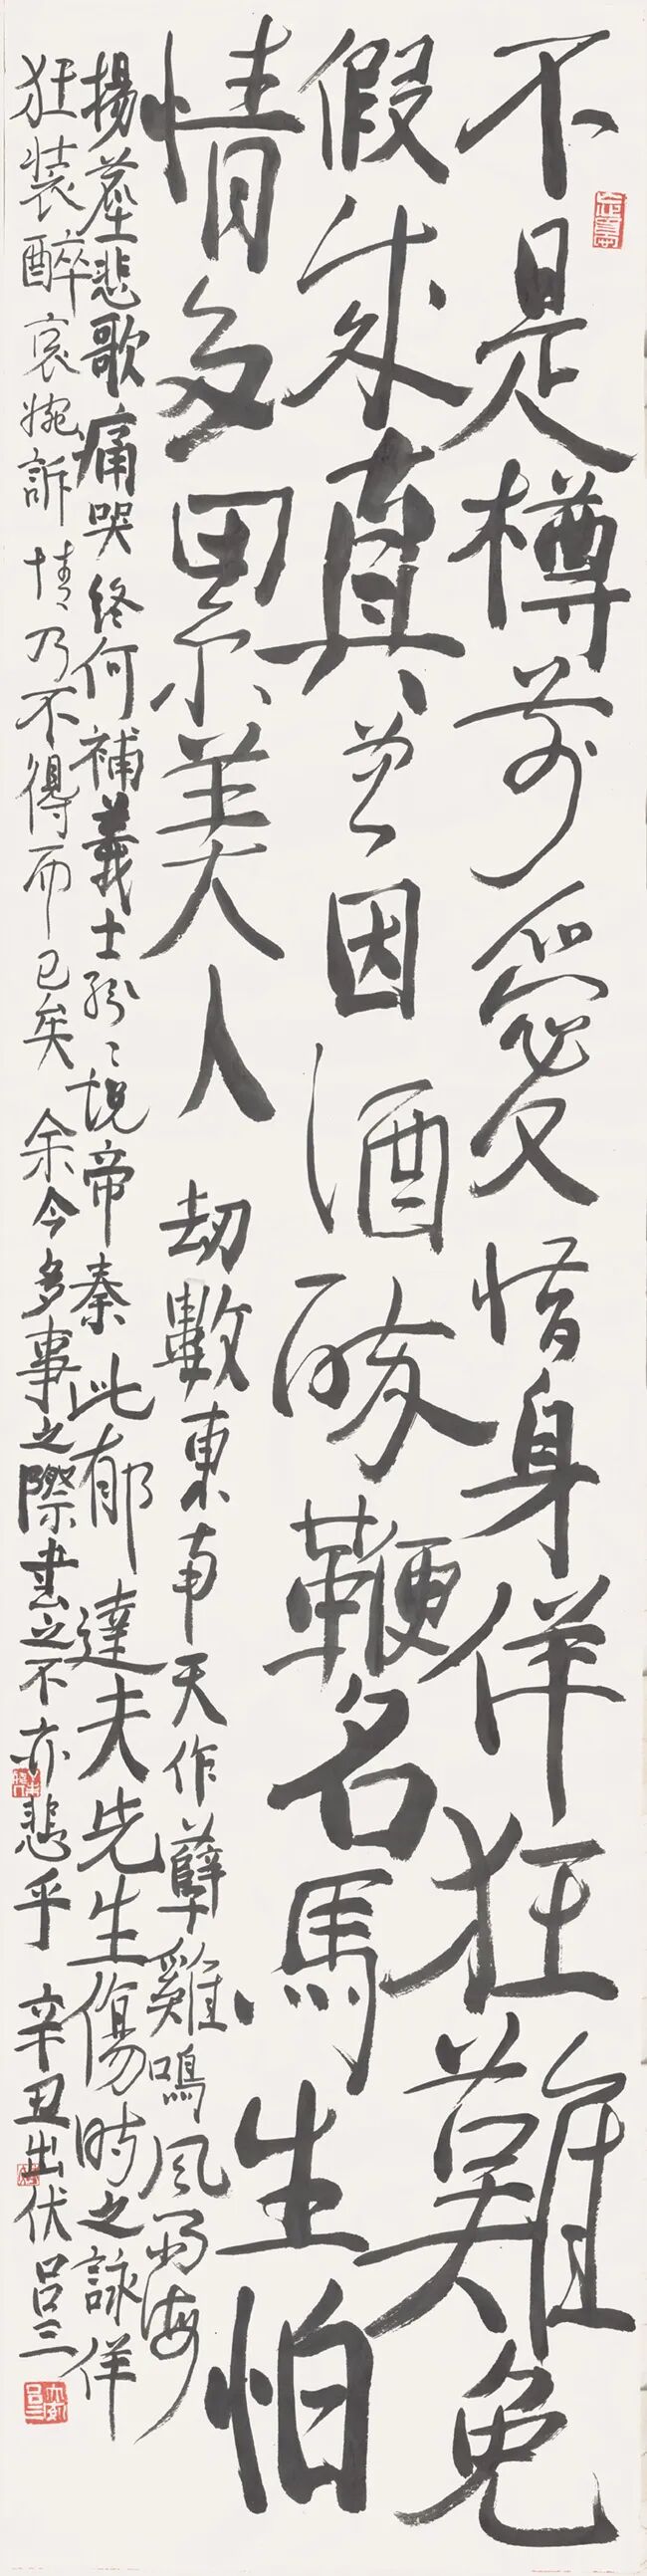 不是樽前愛惜身佯狂難免
假成真曾因酒醉鞭名馬生怕
情多累美人 劫數東南天作孽雞鳴風雨海
揚塵悲歌痛哭終何補義士紛〻說帝秦此郁達夫先生傷時之詠佯
狂裝醉哀婉訴情乃不得而已矣余今多事之際書之不亦悲乎 辛丑出伏呂三